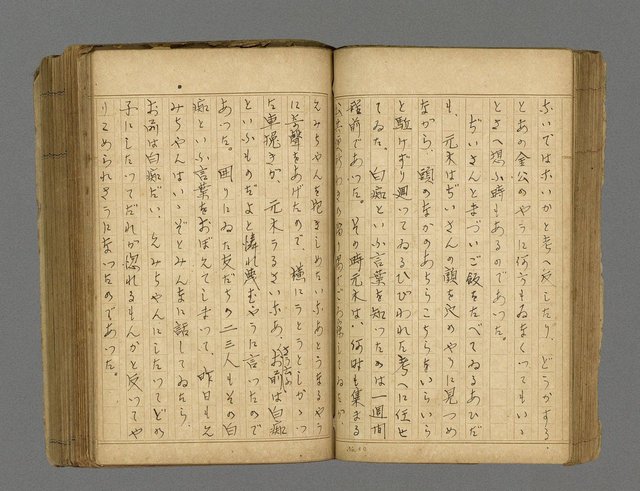 ないではないかと考へ反したり、どうかすると
とあの金公のやうに何うもゐなくつてもいゝ
とさへ想ふ時もあるのであつた。
ぢいさんとまづいご飯をたべてゐるあひだ
も、元木はぢいさんの顔を穴のやうに見つめ
ながら、頭のなかのあちらこちらをいらいら
と駈けずり廻つてゐるひびわれた考へに任せ
てゐた。白痴といふ言葉を知つたのは一週間
程前であつた。その時元木は、何時も集まる
えみちやんを抱きしめたいなあとうまるやう
に芋聲をあげたので、横にうとうとしかゝつ
た車挽きが、元木うるさいなあ、お前は白痴
といふものだよと憐れ蔑むやうに言つたので
あつた。囲りにゐた友だちの二三人もその白
痴といふ言葉をおぼえてしまつて、昨日もえ
みちやんはいゝぞとみんなに話してゐたら、
お前は白痴だい、えみちやんにしたつてどの
子にしたつてだれが惚れるもんかと反つてや
りこめられさうになつたのであつた。